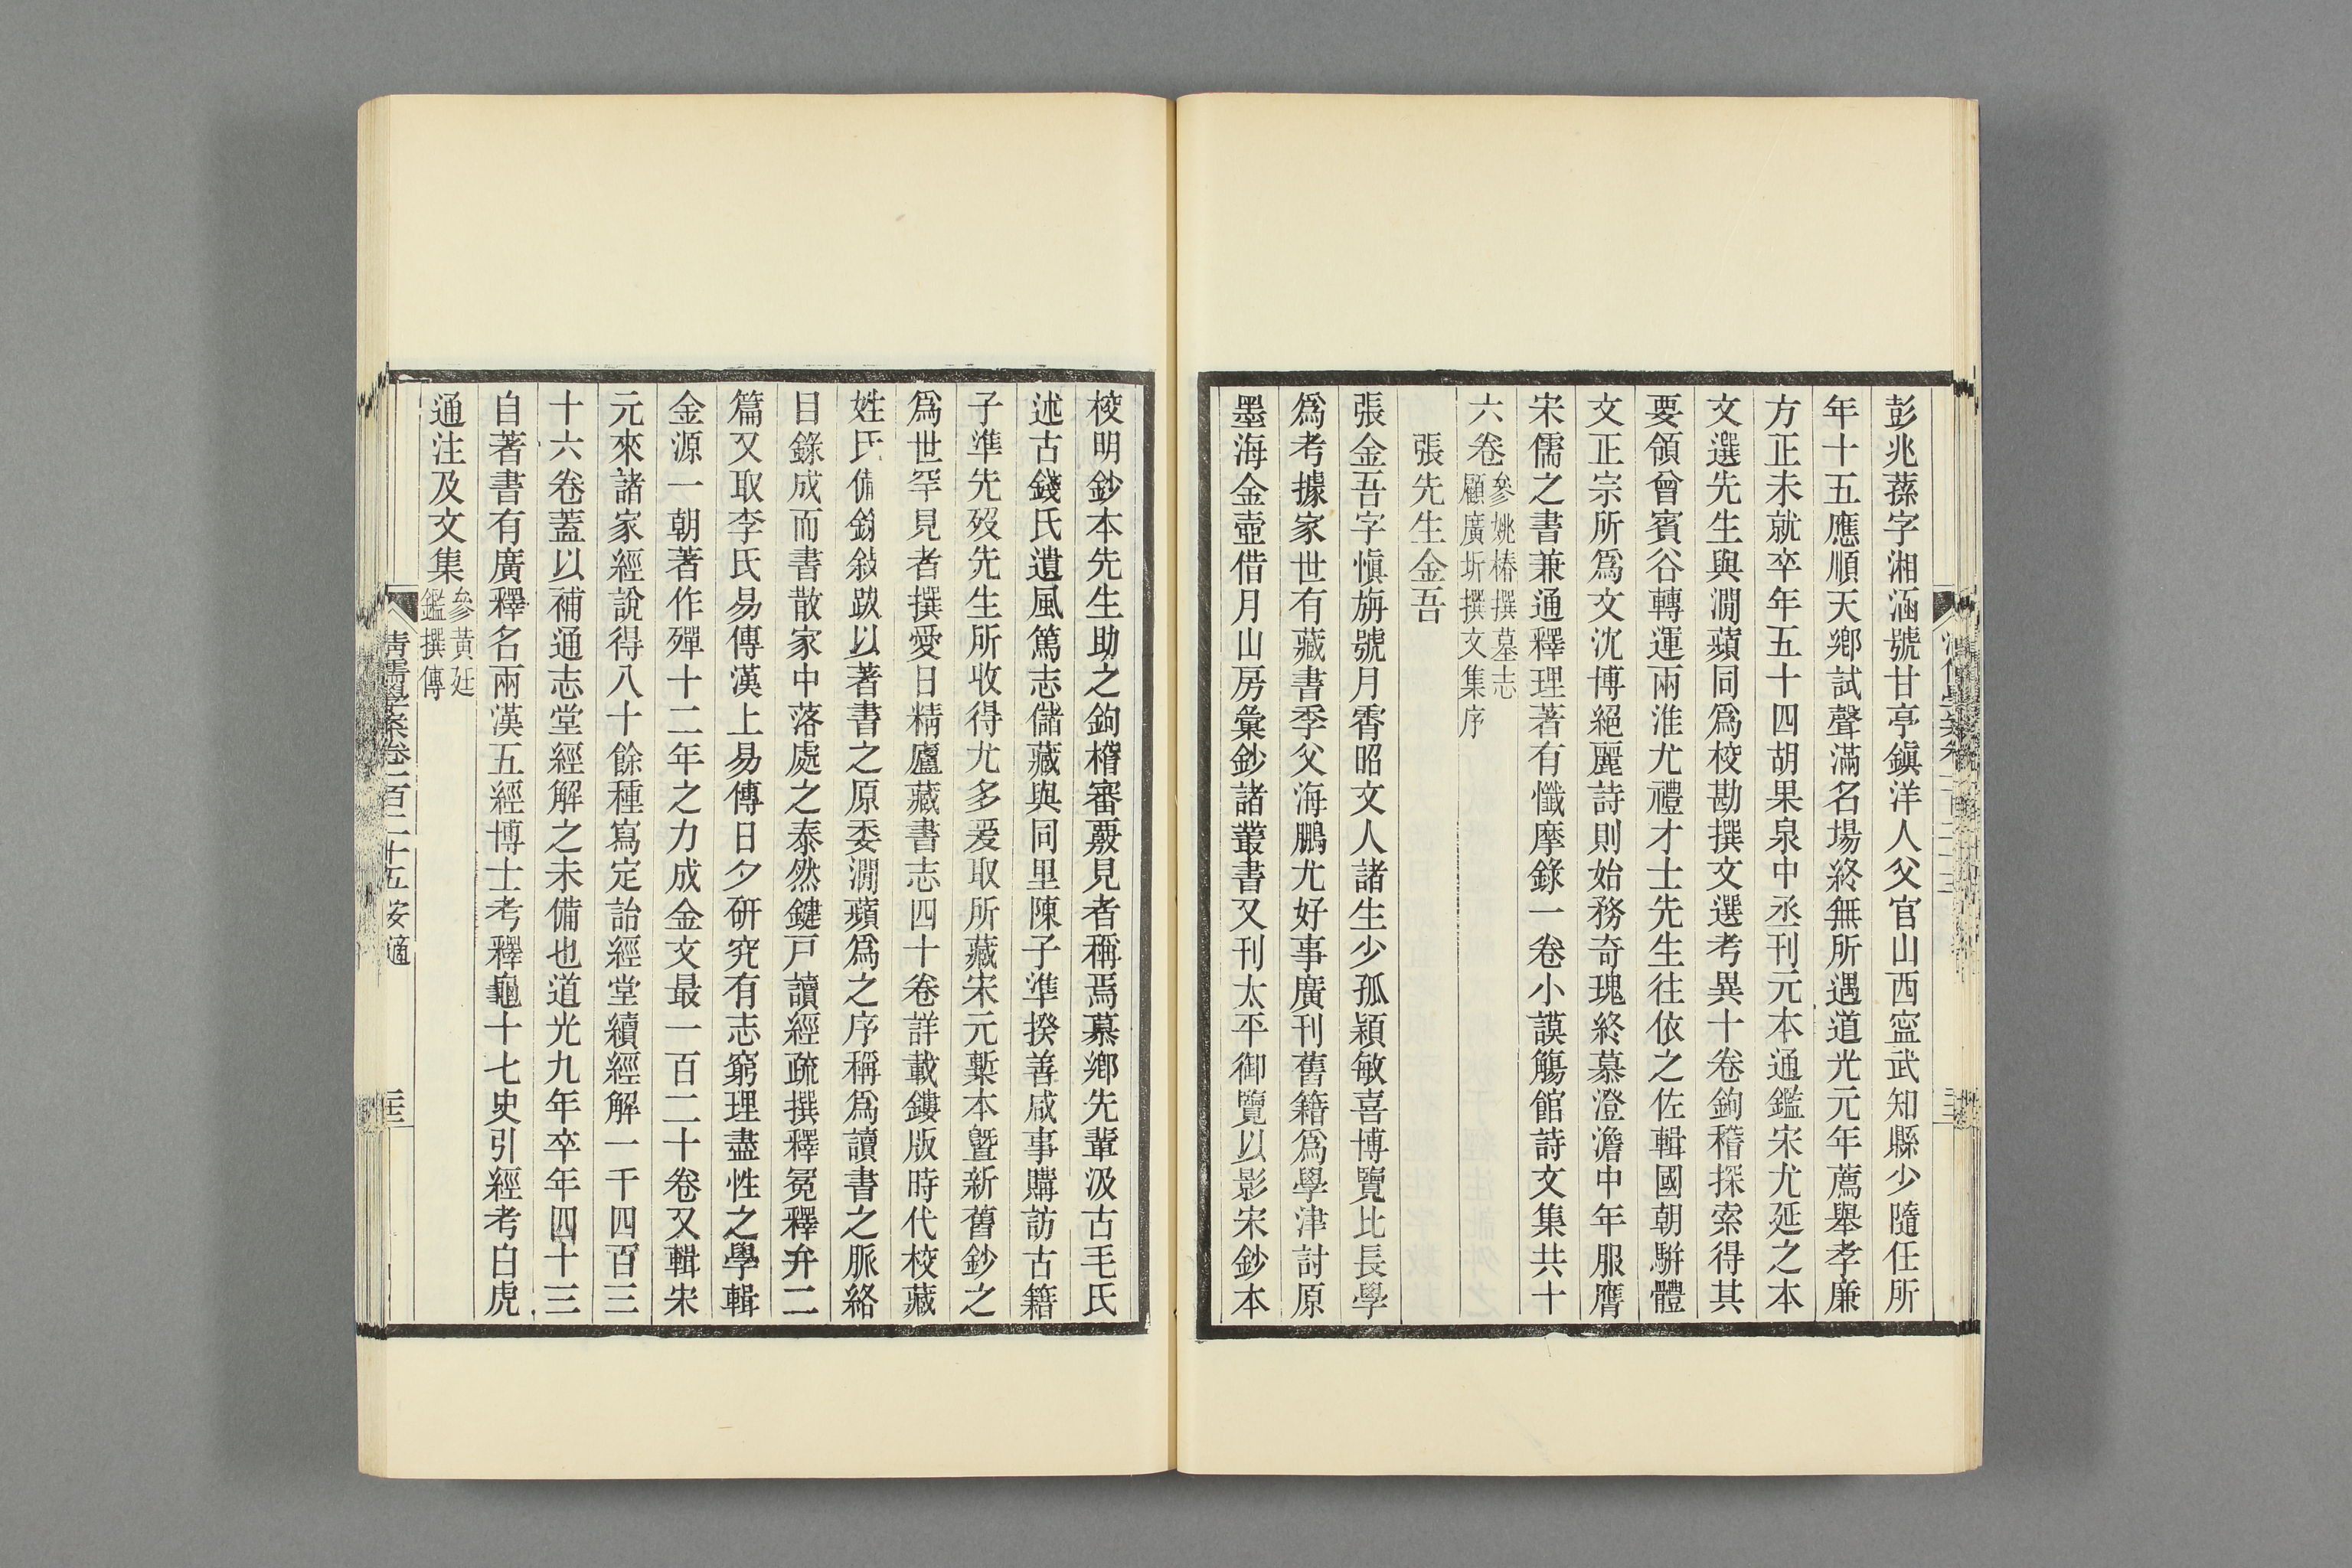 彭兆蓀字湘涵號甘亭鎮洋人父官山西寍武知縣少隨任所
年十五應順天鄉試聲滿名場終無所遇道光元年薦舉孝廉
方正未就卒年五十四胡果泉中丞刊元本通鑑宋尤延之本
文選先生與澗薲同爲校勘撰文選考異十卷鉤稽探索得其
要領曾賓谷轉運兩淮尤禮才士先生往依之佐輯國朝駢體
文正宗所爲文沈博絕麗詩則始務奇瑰終慕澄澹中年服膺
宋儒之書兼通釋理著有懺摩錄一卷小謨觴館詩文集共十
六卷參姚椿撰墓志
顧廣圻撰文集序
張先生金吾
張金吾字愼旃號月霄昭文人諸生少孤穎敏喜博覽比長學
爲考據家世有藏書季父海鵬尤好事廣刊舊籍爲學津討原
墨海金壺借月山房彙鈔諸叢書又刊太平御覽以影宋鈔本
校明鈔本先生助之鉤稽審覈見者稱焉慕鄉先輩汲古毛氏
述古錢氏遺風篤志儲藏與同里陳子準揆善咸事購訪古籍
子準先歿先生所收得尤多爰取所藏宋元槧本曁新舊鈔之
爲世罕見者撰愛日精廬藏書志四十卷詳載鏤版時代校藏
姓氏備錄敍跋以著書之原委澗薲爲之序稱爲讀書之脈絡
目錄成而書散家中落處之泰然鍵戸讀經疏撰釋冕釋弁二
篇又取李氏易傳漢上易傳日夕研究有志窮理盡性之學輯
金源一朝著作殫十二年之力成金文最一百二十卷又輯宋
元來諸家經說得八十餘種寫定詒經堂續經解一千四百三
十六卷蓋以補通志堂經解之未備也道光九年卒年四十三
自著書有廣釋名兩漢五經博士考釋龜十七史引經考白虎
通注及文集參黃廷
鑑撰傳
清儒學案卷一百二十五 安適 二十三